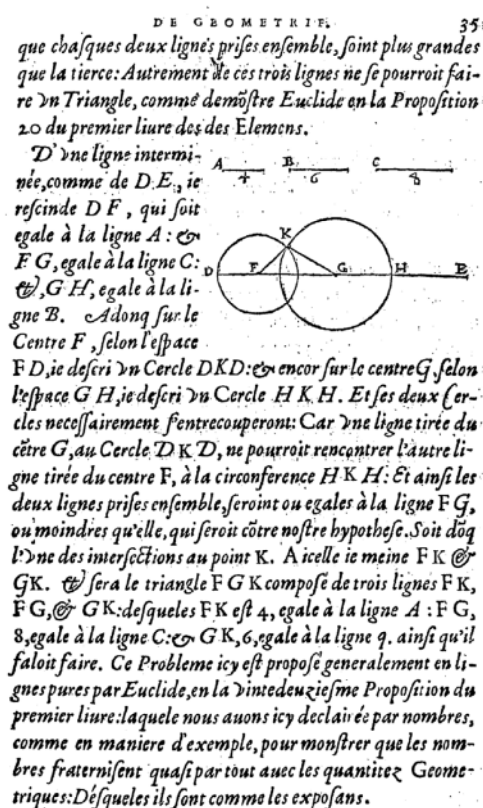 DE GEOMETRIE. 35
que chasques deux lignes prises ensemble, soint plus grandes
que la tierce: Autrement de ces trois lignes ne se pourroit fai-
re vn Triangle, comme demõstre Euclide en la Proposition
20 du premier liure des des Elemens.
D'vne ligne intermi-
née, comme de D E, ie
rescinde D F, qui soit
egale à la ligne A: &
F G, egale à la ligne C:
&, G H, egale à la li-
gne B. Adonq sur le
Centre F, selon l'espace
A B C
4 6 8
K
D F G H E
F D, ie descri vn Cercle DKD: & encor sur le centre G, selon
l'espace G H, ie descri vn Cercle H K H. Et ses deux Cer-
cles necessairement s'entrecouperont: Car vne ligne tirée du
cẽtre G, au Cercle D K D, ne pourroit rencontrer l'autre li-
gne tirée du centre F, à la circonference H K H: Et ainsi les
deux lignes prises ensemble, seroint ou egales à la ligne F G,
ou moindres qu'elle, qui seroit cõtre nostre hypothese. Soit dõq
l'vne des intersections au point K. A icelle ie meine F K &
GK. & sera le triangle F G K composé de trois lignes F K,
F G, & G K: desqueles F K est 4, egale à la ligne A: F G,
8, egale à la ligne C: & G K, 6, egale à la ligne 9. ainsi qu'il
faloit faire. Ce Probleme icy est proposé generalement en li-
gnes pures par Euclide, en la vintedeuziesme Proposition du
premier liure: laquele nous auons icy declairée par nombres,
comme en maniere d'exemple, pour monstrer que les nom-
bres fraternisent quasi par tout auec les quantitez Geome-
triques: Désqueles ils sont comme les exposans.